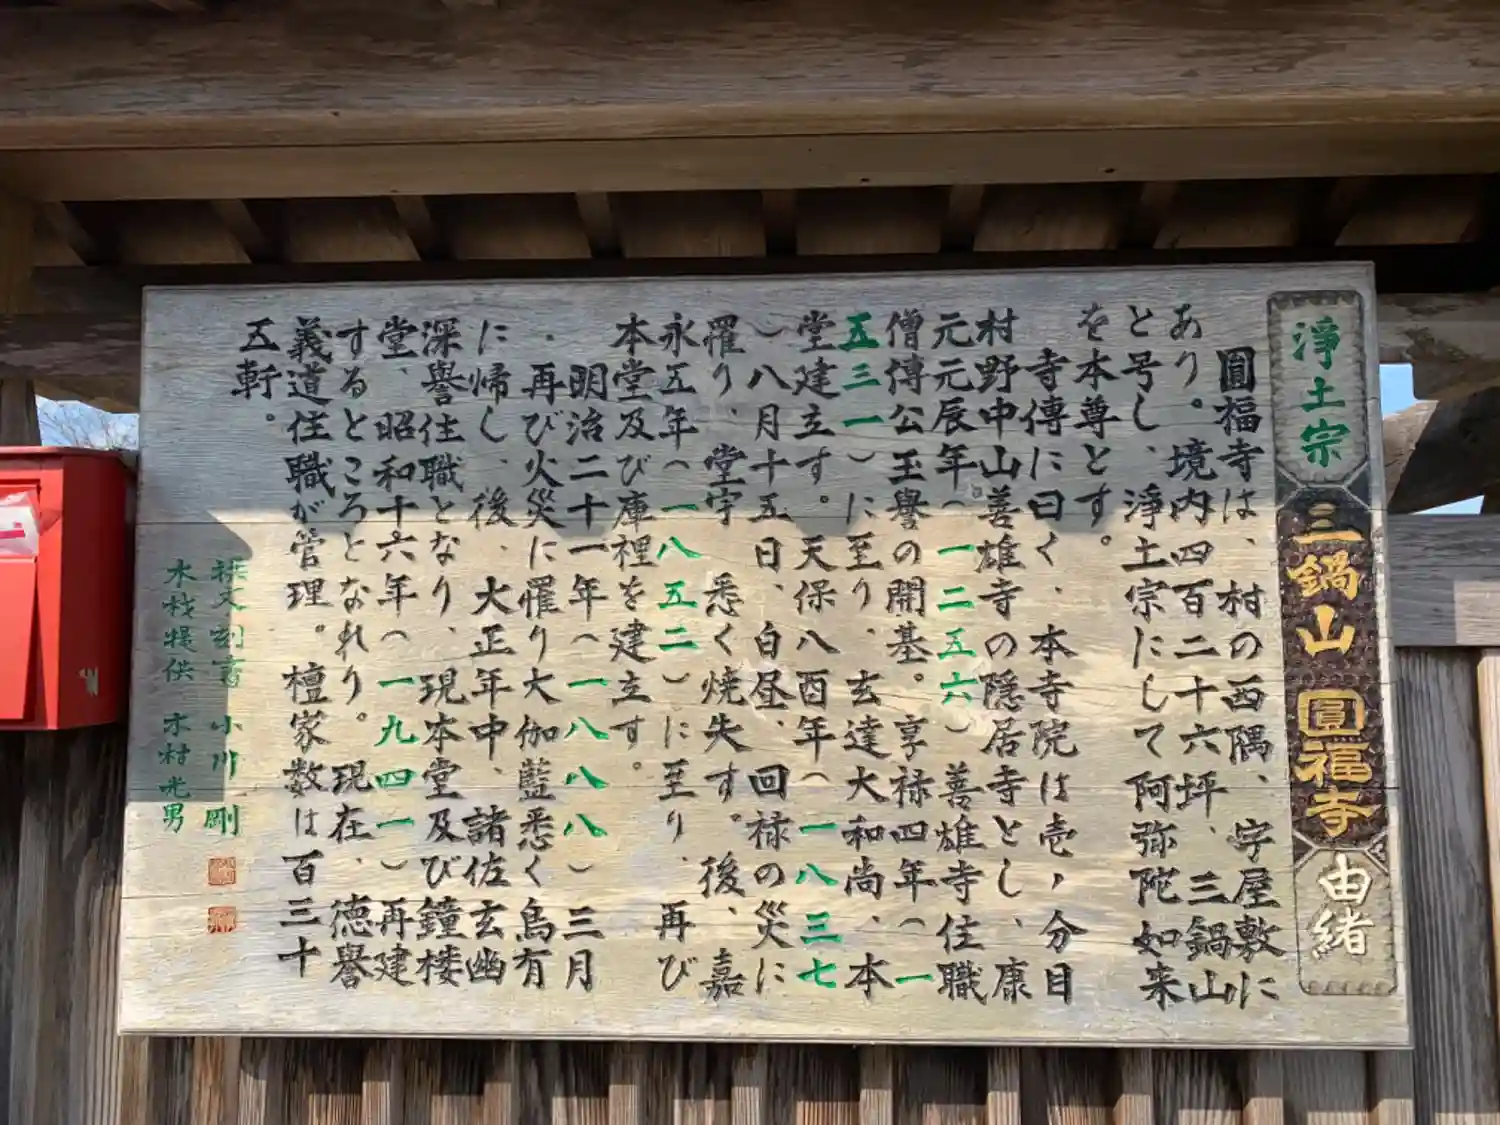 淨土宗 三鍋山 圓福寺 由緒
圓福寺は、村の西隅、字屋敷に
あり。境内四百二十六坪、三鍋山
と号し、淨土宗にして阿弥陀如来
を本尊とす。
寺傳に曰く、本寺院は壱ノ分目
村野中山善雄寺の隠居寺とし、康
元元辰年(一二五六)善雄寺住職
僧傳公玉譽の開基。享禄四年(一
五三一)に至り、玄達大和尚、本
堂建立す。天保八酉年(一八三七
)八月十五日、白昼、回禄の災に
罹り、堂宇 悉く焼失す。後、嘉
永五年(一八五二)に至り、再び
本堂及び庫裡を建立す。
明治二十一年(一八八八)三月
、再び火災に罹り大伽藍悉く烏有
に帰し、後、大正年中、諸佐玄幽
深譽住職となり、現本堂及び鐘楼
堂、昭和十六年(一九四一)再建
するところとなれり。現在、徳譽
義道住職が管理。檀家数は百三十
五軒。
撰文刻書 小川 剛
木材提供 木村光男